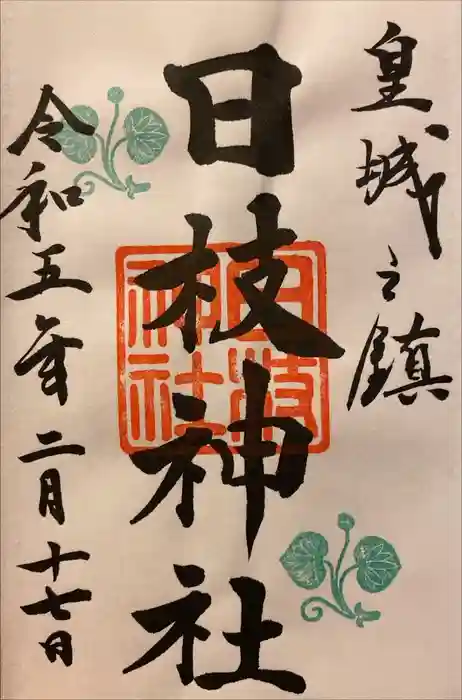 皇城之鎮
日枝神社
日枝
神社
令和五年二月十七日